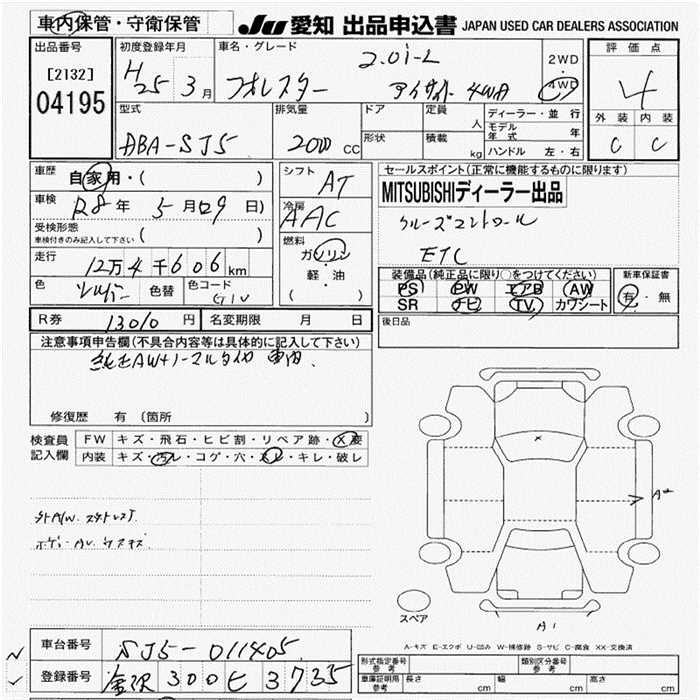 車内保管・守衛保管
JU 愛知 出品申込書 JAPAN USED CAR DEALERS ASSOCIATION
出品番号 初度登録年月 車名・グレード 評価点
[2132] H 25 3月 フォレスター 2.0i-L 2WD・4WD 4
04195 アイサイト 4WD 外装 内装
型式 排気量 ドア 定員 人 ディーラー・並行 C C
ABA-SJ5 2000 CC 形状 積載 kg モデル年式 年
ハンドル 左・右
車歴 自家用・( ) シフト AT セールスポイント(正常に機能するものに限ります)
車検 R8年 5月(29日) 冷房 AAC MITSUBISHIディーラー出品
受検形態 ( ) クルーズコントロール
車検付きのみ記入して下さい 燃料 ガソリン・軽・油 ( ) ETC
走行 12万4千606km 装備品(純正品に限り○をつけてください) 新車保証書
色 シルバー 色替 色コード G1U PS PW エアB AW 有・無
SR ナビ TV カワシート
R券 13010円 名変期限 月 日 後日品
注意事項申告欄(不具合内容等は具体的に記入して下さい)
純正AW+ノーマルタイヤ 車内.
修復歴 有 (箇所 )
検査員 FW キズ・飛石・ヒビ割・リペア跡・X要
記入欄 内装 キズ・汚レ・コゲ・穴・スレ・キレ・破レ
社A/W. スタッドレス.
ボディーAU. ウスキズ.
X
A2
A1
スペア
A-キズ E-エクボ U-凹み W-補修跡 S-サビ C-腐食 XX-交換済
車台番号 SJ5-011405
登録番号 金沢 300 ヒ 3735
形式指定番号 参考 類別区分番号 参考
車庫証明用 参考 長さ cm 幅 cm 高さ cm